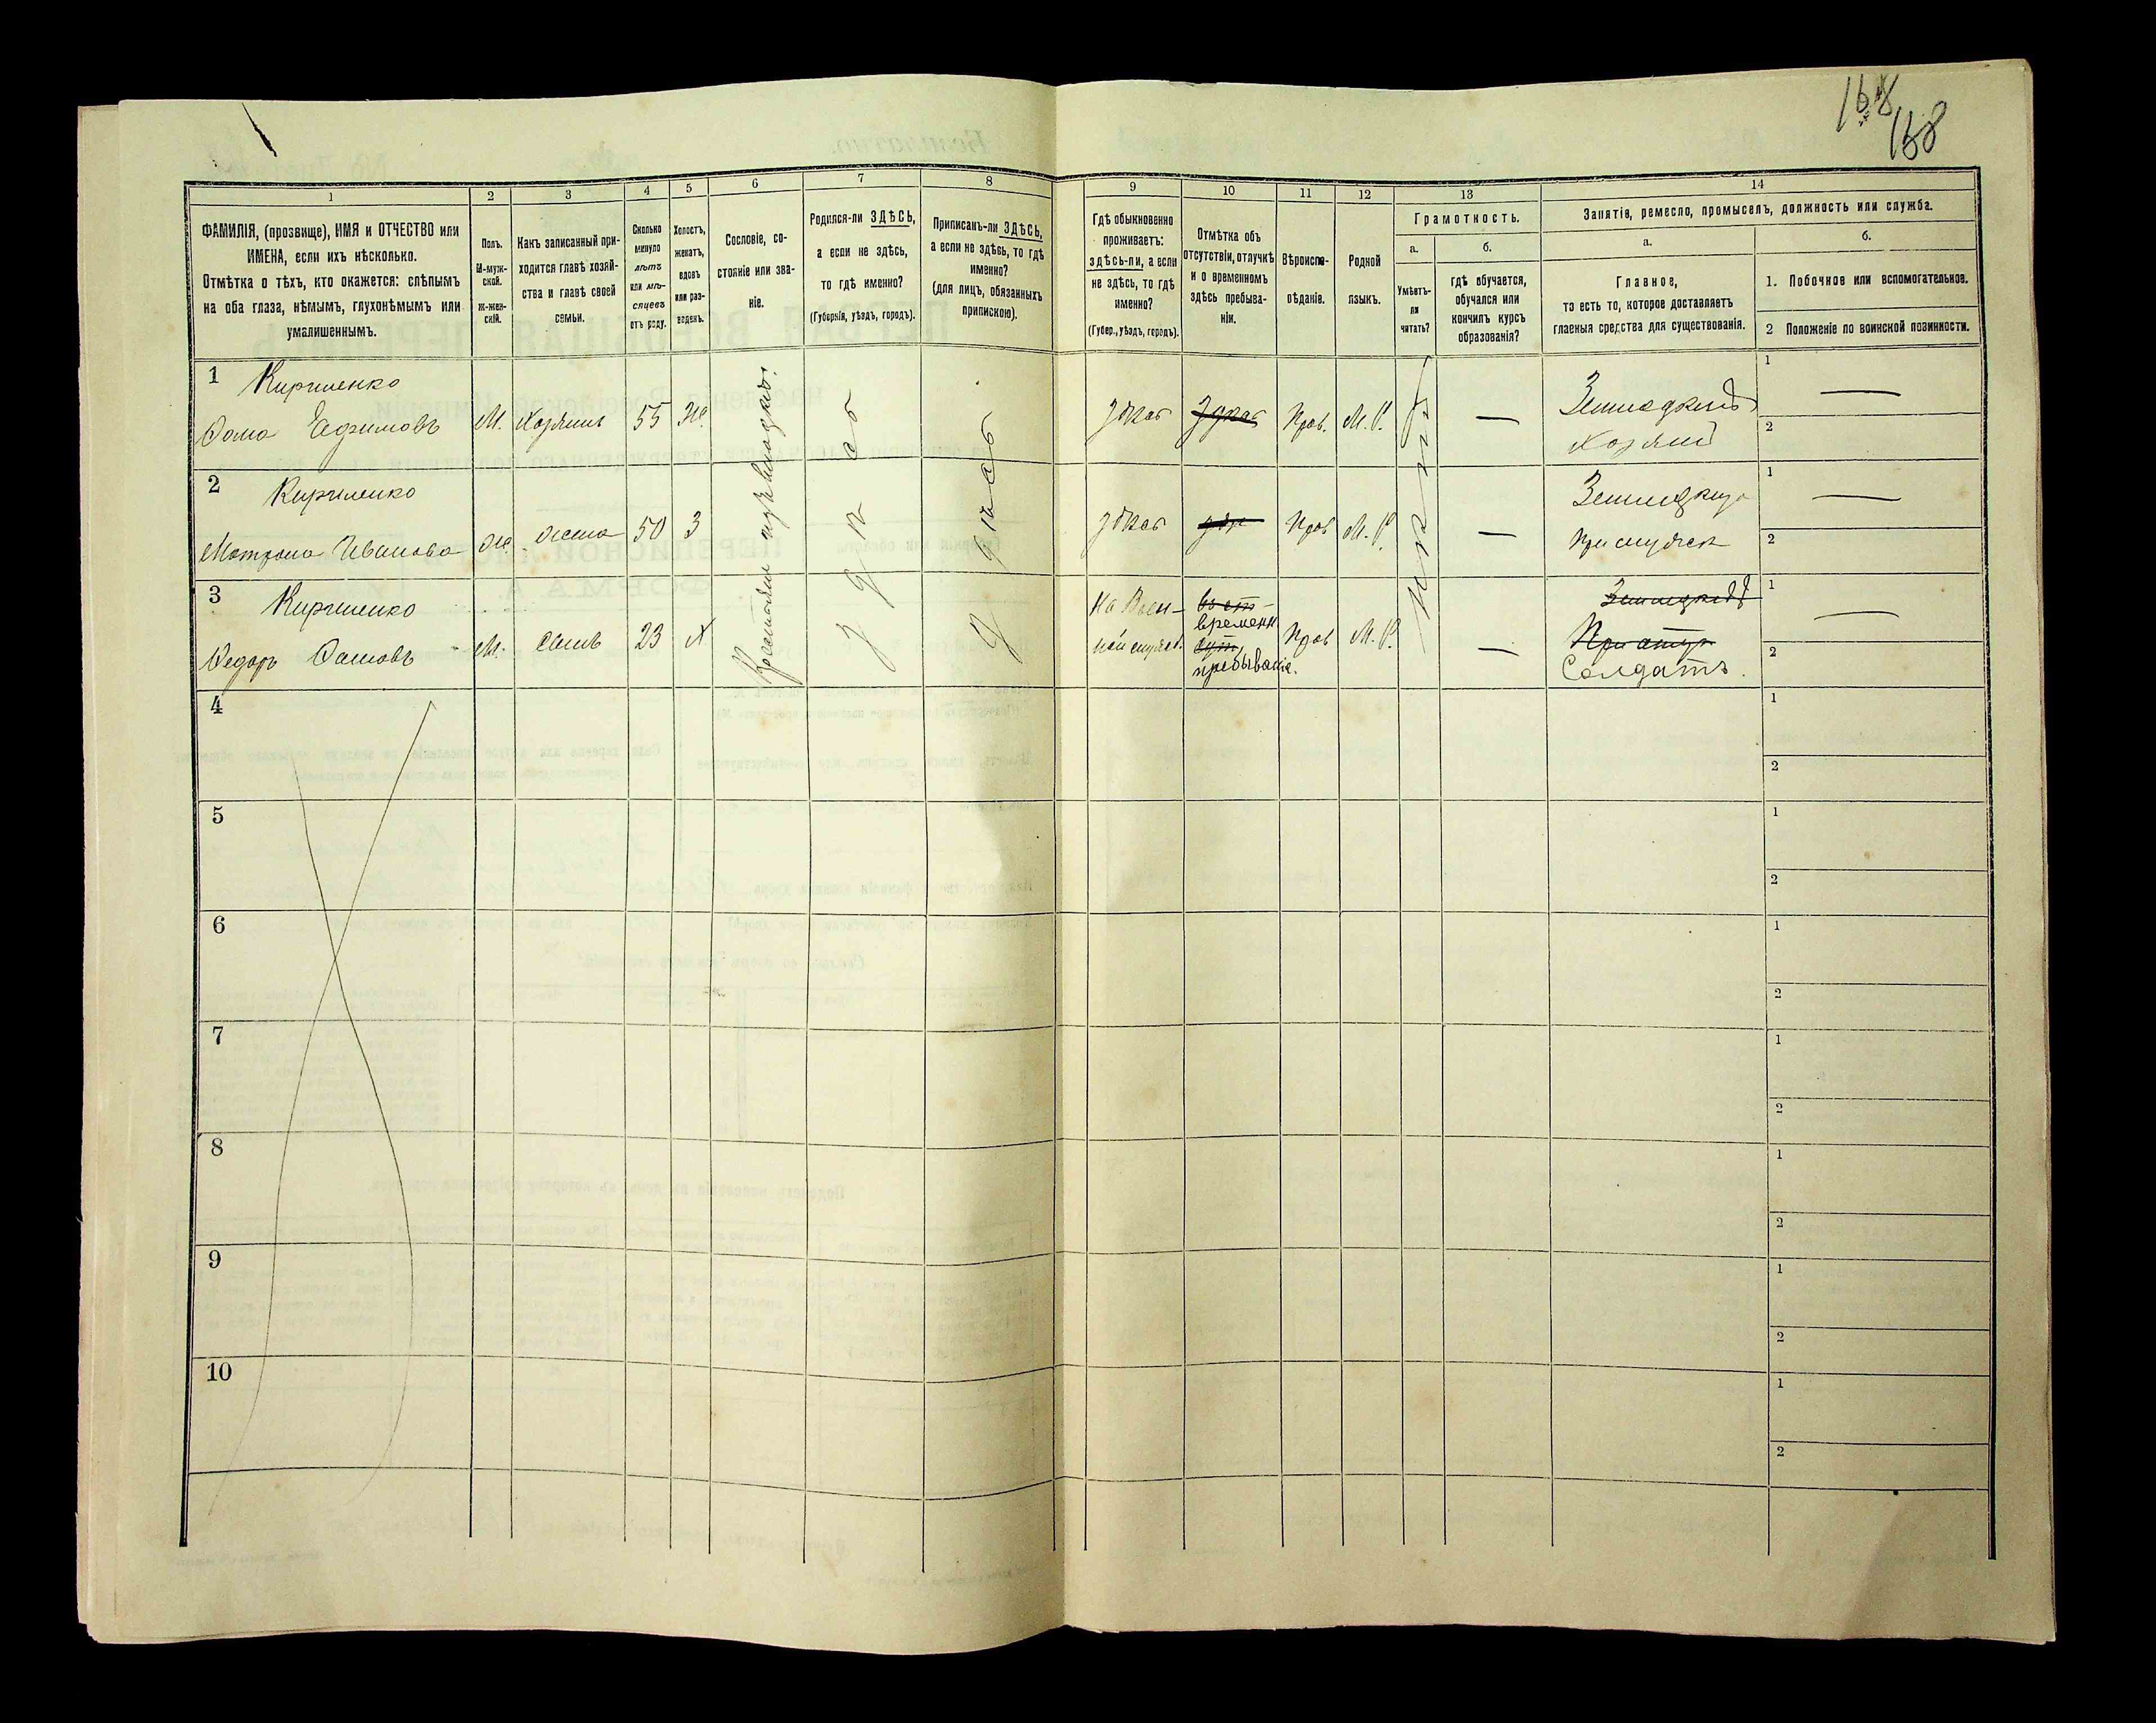 168
168
1
2
3
4
5
6
7
8
9
10
11
12
13
14
ФАМИЛІЯ, (прозвище), ИМЯ и ОТЧЕСТВО или
ИМЕНА, если ихъ нѣсколько.
Отмѣтка о тѣхъ, кто окажется: слѣпымъ
на оба глаза, нѣмымъ, глухонѣмымъ или
умалишеннымъ.
Полъ.
М-муж-
ской.
Ж-жен-
скій.
Какъ записанный при-
ходится главѣ хозяй-
ства и главѣ своей
семьи.
Сколько
минуло
лѣтъ
или мѣ-
сяцевъ
отъ роду.
Холостъ,
женатъ,
вдовъ
или раз-
веденъ.
Сословіе, со-
стояніе или зва-
ніе.
Родился-ли ЗДѢСЬ,
а если не здѣсь,
то гдѣ именно?
(Губернія, уѣздъ, городъ).
Приписанъ-ли ЗДѢСЬ,
а если не здѣсь, то гдѣ
именно?
(для лицъ, обязанныхъ
припискою).
Гдѣ обыкновенно
проживаетъ:
здѣсь-ли, а если
не здѣсь, то гдѣ
именно?
(Губер., уѣздъ, городъ).
Отмѣтка объ
отсутствіи, отлучкѣ
и о временномъ
здѣсь пребыва-
ніи.
Вѣроиспо-
вѣданіе.
Родной
языкъ.
Грамотность.
а.
Умѣетъ-
ли
читать?
б.
гдѣ обучается,
обучался или
кончилъ курсъ
образованія?
Занятіе, ремесло, промыселъ, должность или служба.
а.
Главное,
то есть то, которое доставляетъ
главныя средства для существованія.
б.
1. Побочное или вспомогательное.
2 Положеніе по воинской повинности.
1 Кириленко
Фома Ефимовъ М. Хозяинъ 55 Ж. здѣсь здѣсь Прав. М. Р. — Земледѣлецъ
Хозяинъ
1 —
2
2 Кириленко
Матрона Иванова Ж. жена 50 З здѣсь здѣ Прав М. Р. —
1 —
2
3 Кириленко
Федоръ Фомовъ М. сынъ 23 Х
На Воен-
ной служб.
временн
пребываніе.
Прав М. Р. —
Земледѣлецъ
Солдатъ.
1 —
2
Крестьянинъ изъ
здѣсь
здѣсь
4
1
2
5
1
2
6
1
2
7
1
2
8
1
2
9
1
2
10
1
2